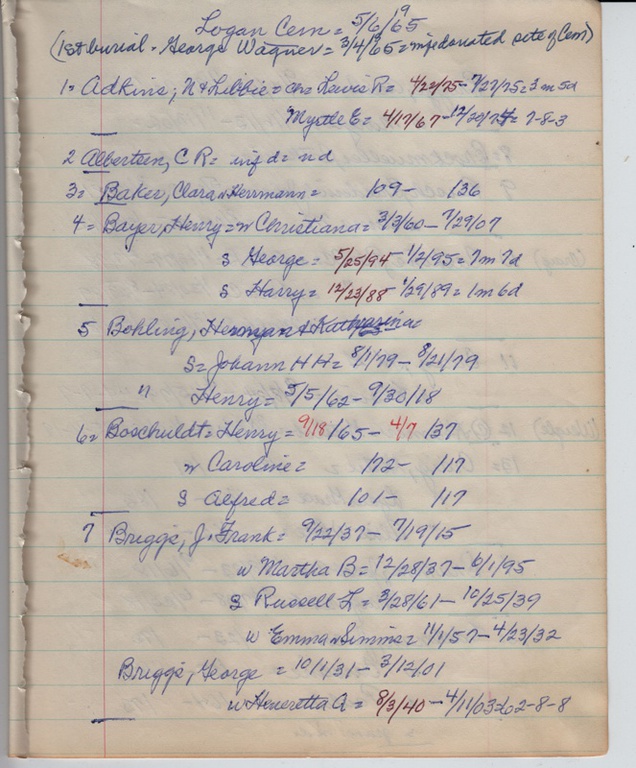 Logan Cem = 5/6/1965
(1st burial - George Wagner = 3/4/65 = inf donated site of Cem)
1 = Adkins; N & Libbie = ch = Lewis R = 4/22/75 - 7/27/75 = 3m 5d
Myrtle E = 4/17/67 - 12/20/74 = 7-8-3
2 Albertsen, C R = inf d = nd
3 = Baker, Clara n Herrmann = /09 - /36
4 = Bayer, Henry = w Christiana = 3/3/60 - 7/29/07
s George = 5/25/94 - 1/2/95 = 7m 7d
s Harry = 12/23/88 - 1/29/89 = 1m 6d
5 Bohling, Herman & Katharina
s = Johann H H = 8/1/79 - 8/21/79
" Henry = 5/5/62 - 9/30/18
6 = Boschuldt = Henry = 9/18/65 - 4/7/37
w Caroline = /72 - /17
s Alfred = /01 - /17
7 Briggs, J. Frank = 9/22/37 - 7/19/15
w Martha B = 12/28/37 - 6/1/95
s Russell L = 3/28/61 - 10/25/39
w Emma n Simms = 11/1/57 - 4/23/32
Briggs, George = 10/1/31 - 3/12/01
w Heneretta A = 8/3/40 - 4/11/03 = 62-8-8